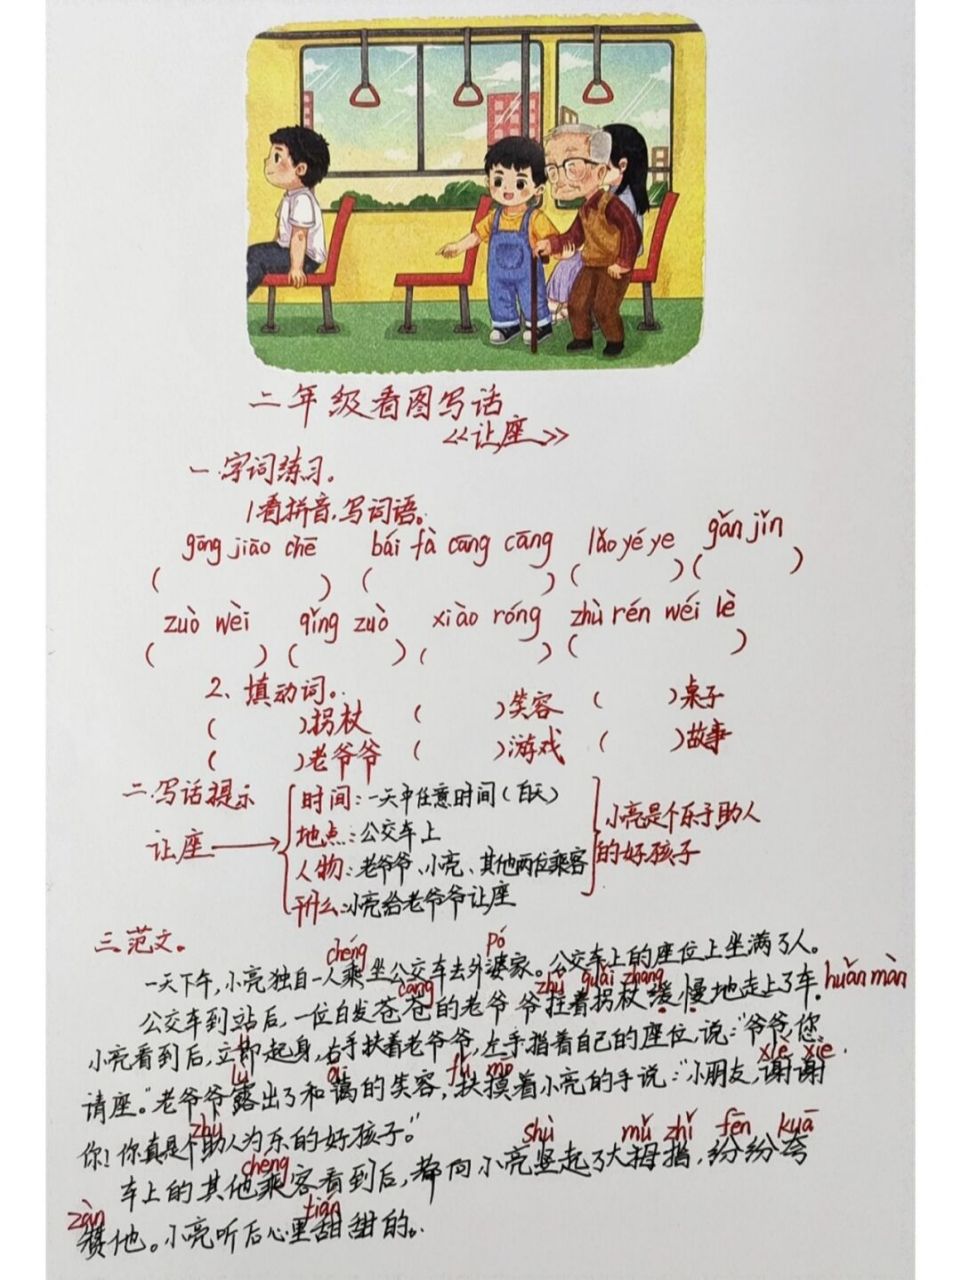 二年级看图写话
《让座》
一.字词练习。
1.看拼音,写词语。
gōng jiāo chē bái fà cāng cāng lǎo yé ye gǎn jǐn
( ) ( ) ( ) ( )
zuò wèi qǐng zuò xiào róng zhù rén wéi lè
( ) ( ) ( ) ( )
2、填动词。
( )拐杖 ( )笑容 ( )桌子
( )老爷爷 ( )游戏 ( )故事
二.写话提示
让座
时间:一天中任意时间(白天)
地点:公交车上
人物:老爷爷、小亮、其他两位乘客
干什么:小亮给老爷爷让座
小亮是个乐于助人
的好孩子
三.范文。
chéng pó
一天下午,小亮独自一人乘坐公交车去外婆家。公交车上的座位上坐满了人。
cāng zhǔ guǎi zhàng huǎn màn
公交车到站后,一位白发苍苍的老爷爷拄着拐杖缓慢地走上了车.
小亮看到后,立即起身,右手扶着老爷爷,左手指着自己的座位,说:“爷爷,您
lù ǎi fǔ mō xiè xie
请座。”老爷爷露出了和蔼的笑容,扶摸着小亮的手说:“小朋友,谢谢
zhù
你!你真是个助人为乐的好孩子。”
chéng shù mǔ zhǐ fēn kuā
车上的其他乘客看到后,都向小亮竖起了大拇指,纷纷夸
zàn tián
赞他。小亮听后心里甜甜的。